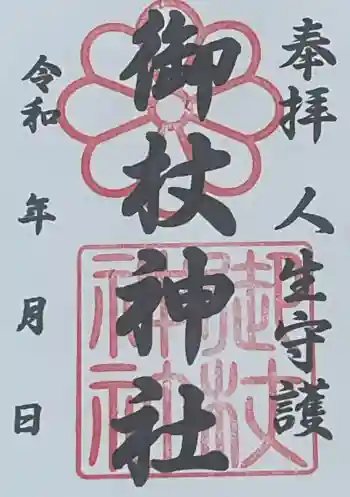 奉拝 人生守護
御杖神社
令和 年 月 日
御杖神社